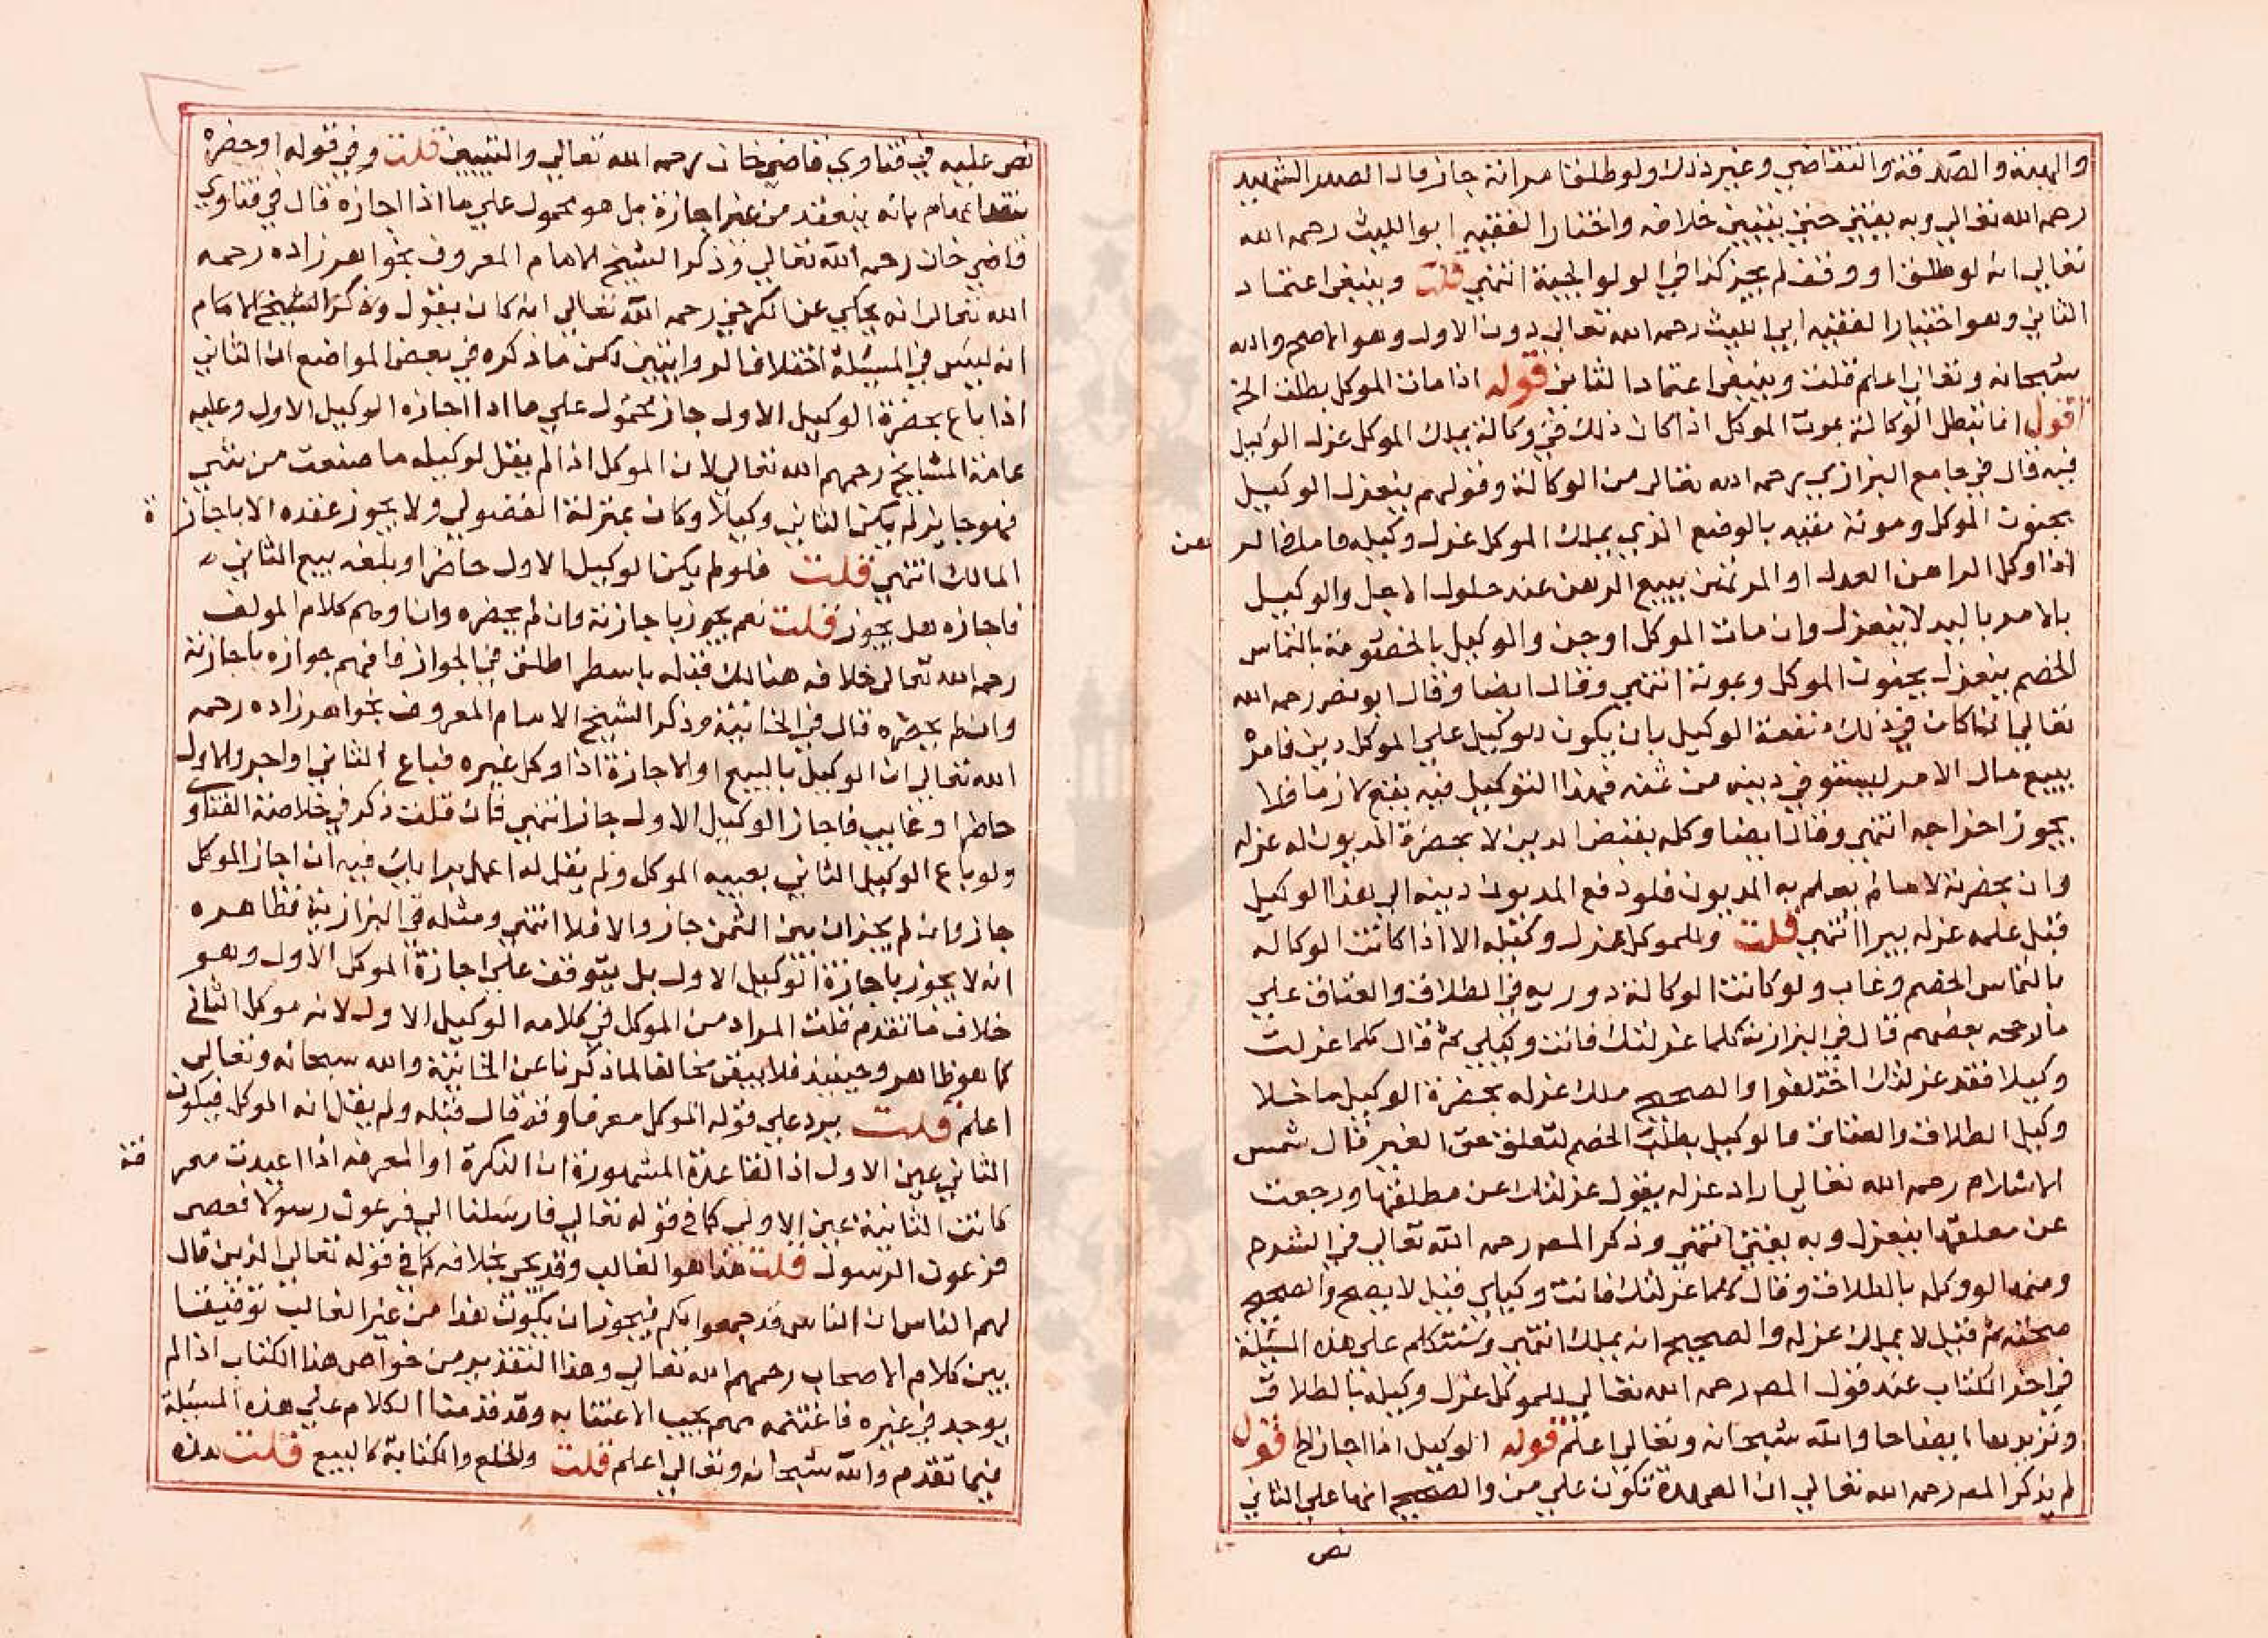 والهبة والصدقة والتقاضي وغير ذلك ولو طلق امراته جاز قال الصدر الشهيد
رحمه الله تعالي وبه يفتي حتي يتبين خلافه واختار الفقيه ابو الليث رحمه الله
تعالي انه لو طلق او وقف لم يجز كذا في الولوالجية انتهي قلت وينبغي اعتماد
الثاني وهو اختيار الفقيه ابي الليث رحمه الله تعالي دون الاول وهو الاصح والله
سبحانه وتعالي اعلم قلت وينبغي اعتماد الثاني قوله اذا مات الموكل بطلت الخ
اقول انما تبطل الوكالة بموت الموكل اذا كان ذلك في وكالة يملك الموكل عزل الوكيل
فيه قال في جامع البزازي رحمه الله تعالي من الوكالة وقولهم ينعزل الوكيل
بجنون الموكل وموته مقيد بالوضع الذي يملك الموكل عزل وكيله فاما في الر هن
اذا وكل الراهن العدل او المرتهن ببيع الرهن عند حلول الاجل والوكيل
بالامر باليد لا ينعزل وان مات الموكل او جن والوكيل بالخصومة بالتماس
الخصم ينعزل بجنون الموكل وبموته انتهي وقال ايضا وقال ابو نصر رحمه الله
تعالي اذا كان في ذلك منفعة الوكيل بان يكون للوكيل علي الموكل دين فامره
ببيع مال الامر ليستوفي دينه من ثمنه فهذا التوكيل فيه يقع لازما فلا
يجوز اخراجه انتهي وقال ايضا وكله بقبض الدين لا بحضرة المديون له عزله
وان بحضرته لا ما لم يعلم به المديون فلو دفع المديون دينه الي هذا الوكيل
قبل علمه عزله يبرا انتهي قلت وللموكل عزل وكيله الا اذا كانت الوكالة
بالتماس الخصم وغاب ولو كانت الوكالة دوريه في الطلاق والعتاق علي
ما لاححه بعضهم قال في البزازية كلما عزلتك فانت وكيلي ثم قال كلما عزلت
وكيلا فقد عزلتك اختلفوا والصحيح ملك عزله بحضرة الوكيل ما خلا
وكيل الطلاق والعتاق والوكيل بطلب الخصم لتعلق حق الغير قال شمس
الاسلام رحمه الله تعالي اراد عزله يقول عزلتك عن مطلقتها ورجعت
عن معلقها ينعزل وبه يفتي انتهي وذكر المصـ رحمه الله تعالي في الشرح
ومنها لو وكله بالطلاق وقال كلما عزلتك فانت وكيلي قيل لا يصح والصحيح
صحته ثم قيل لا يملك عزله والصحيح انه يملك انتهي وسنتكلم علي هذه المسئلة
في اخر الكتاب عند قول المصـ رحمه الله تعالي للموكل عزل وكيله بالطلاق
ونزيدها ايضاحا والله سبحانه وتعالي اعلم قوله الوكيل اذا اجاز الخ قول
لم يذكر المصـ رحمه الله تعالي ان العهدة تكون علي من والصحيح انها علي الثاني
نص
نص عليه في فتاوي قاضي خان رحمه الله تعالي والتبيين قلت وفي قوله او حضره
بانه ينعقد من غير اجازة بل هو محمول علي ما اذا اجازه قال في فتاوي
قاضي خان رحمه الله تعالي وذكر الشيخ الامام المعروف بخواهر زاده رحمه
الله تعالي انه يحكي عن الكرخي رحمه الله تعالي انه كان يقول وذكر الشيخ الامام
انه ليس في المسئلة اختلاف الروايتين لكن ما ذكره في بعض المواضع ان الثاني
اذا باع بحضرة الوكيل الاول جاز محمول علي ما اذا اجازه الوكيل الاول وعليه
عامة المشايخ رحمهم الله تعالي لان الموكل اذا لم يقل لوكيله ما صنعت من شي
فهو جايز لم يكن الثاني وكيلا وكان بمنزلة الفضولي ولا يجوز عقده الا باجازة
المالك انتهي قلت فلو لم يكن الوكيل الاول حاضرا وبلغه بيع الثاني
فاجازه هل يجوز قلت نعم يجوز باجازته وان لم يحضره وان اوهم كلام المولف
رحمه الله تعالي خلافه هنالك قبله باسطر اطلق في الجواز فافهم جوازه باجازته
وان لم يحضره قال في الخانية وذكر الشيخ الامام المعروف بخواهر زاده رحمه
الله تعالي ان الوكيل بالبيع او الاجازة اذا وكل غيره فباع الثاني او اجر والاول
حاضر او غايب فاجاز الوكيل الاول جاز انتهي فان قلت ذكر في خلاصة الفتاوي
ولو باع الوكيل الثاني بغيبة الموكل ولم يقل له اعمل برايك فيه ان اجاز الموكل
جاز وان لم يجز ان بين الثمن جاز والا فلا انتهي ومثله في البزازية فظاهره
انه لا يجوز باجازة الوكيل الاول بل يتوقف علي اجازة الموكل الاول وهو
خلاف ما تقدم قلت المراد من الموكل في كلامه الوكيل الاول لانه موكل الثاني
كما هو ظاهر وحينيذ فلا يبقي مخالفا لما ذكرنا عن الخانية والله سبحانه وتعالي
اعلم قلت يرد علي قوله الموكل معرفا وقد قال قبله ولم يقل انه الموكل فيكون
الثاني عين الاول اذ القاعدة المشهورة ان النكرة او المعرفة اذا اعيدت معرفة
كانت الثانية عين الاولي كما في قوله تعالي فارسلنا الي فرعون رسولا فعصي
فرعون الرسول قلت هذا هو الغالب وقد يجي بخلافه كما في قوله تعالي الذين قال
لهم الناس ان الناس قد جمعوا لكم فيجوز ان يكون هذا من غير الغالب توفيقا
بين كلام الاصحاب رحمهم الله تعالي وهذا التقدير من خواص هذا الكتاب اذ لم
يوجد في غيره فاغتنمه مهم يجب الاعتنا به وقد قدمنا الكلام علي هذه المسئلة
فيما تقدم والله سبحانه وتعالي اعلم قلت والخلع والكتابة كالبيع قلت هذه